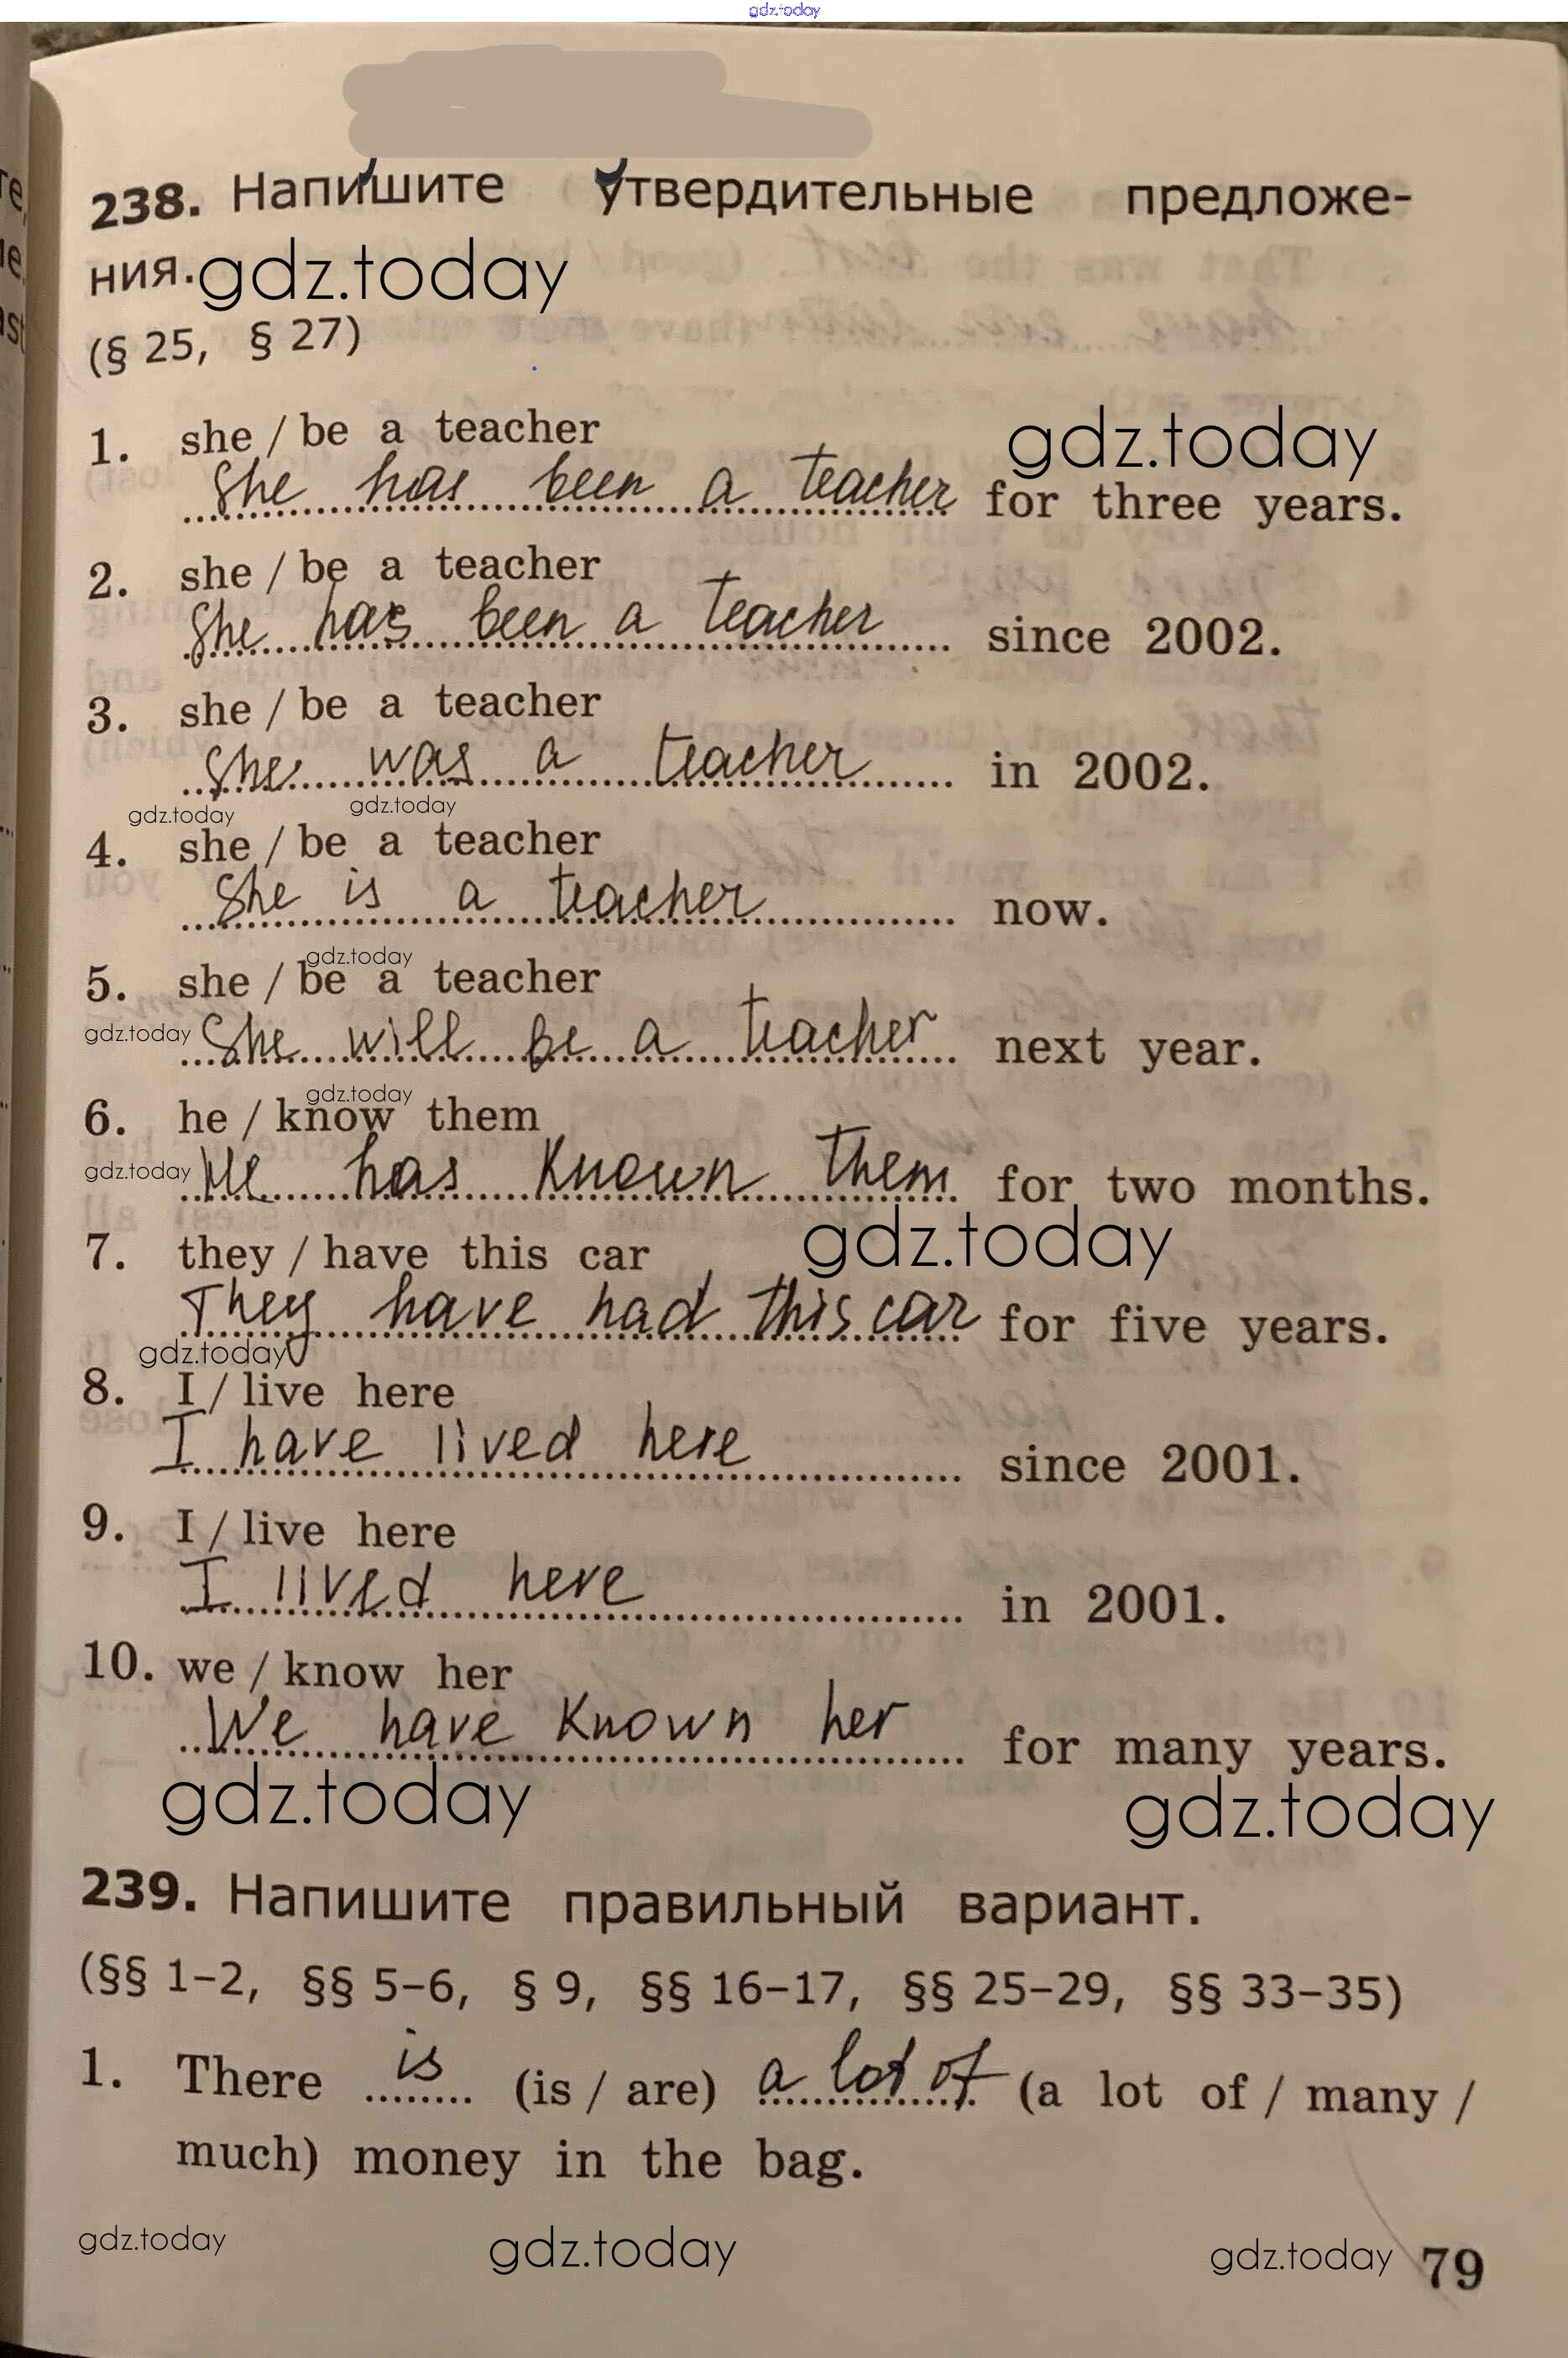 gdz.today
238. Напишите утвердительные предложе-
ния. gdz.today
(§ 25, § 27)
1. she / be a teacher
gdz.today
She has been a teacher for three years.
2. she / be a teacher
She has been a teacher since 2002.
3. she / be a teacher
She was a teacher in 2002.
gdz.today gdz.today
4. she / be a teacher
She is a teacher now.
gdz.today
5. she / be a teacher
gdz.today She will be a teacher next year.
gdz.today
6. he / know them
gdz.today He has known them for two months.
7. they / have this car gdz.today
They have had this car for five years.
gdz.today
8. I / live here
I have lived here since 2001.
9. I / live here
I lived here in 2001.
10. we / know her
We have known her for many years.
gdz.today gdz.today
239. Напишите правильный вариант.
(§§ 1–2, §§ 5–6, § 9, §§ 16–17, §§ 25–29, §§ 33–35)
1. There is (is / are) a lot of (a lot of / many /
much) money in the bag.
gdz.today gdz.today gdz.today 79